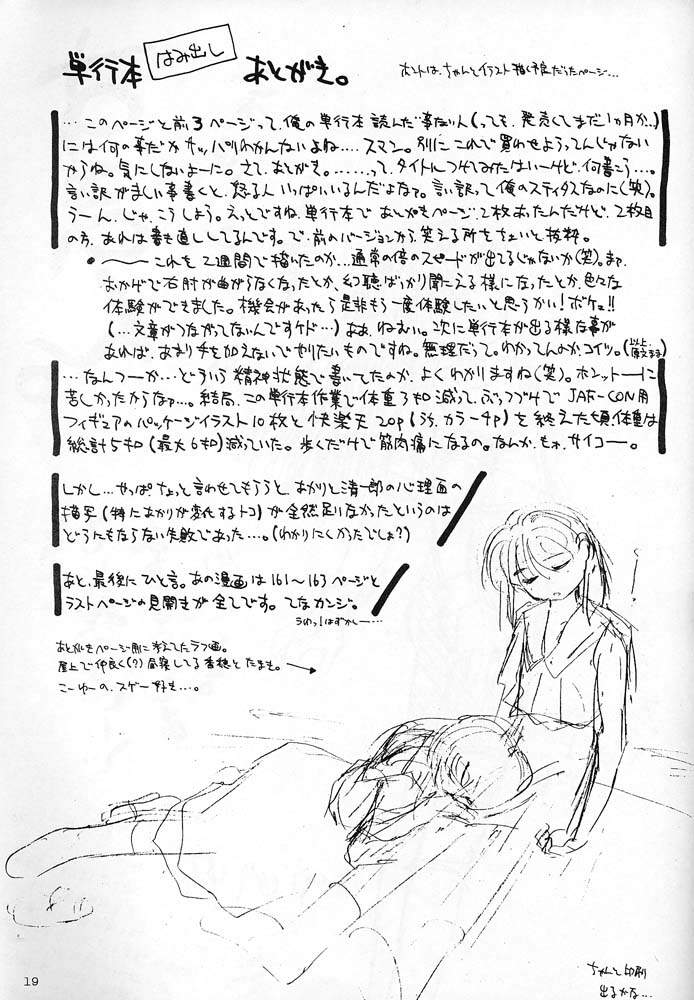 単行本 はみ出し あとがき。
ホントは、ちゃんとイラスト描く予定だったページ…
…このページと前3ページって、俺の単行本読んだ事ない人(っても、発売してまだ1ヵ月か…)
には何の事だかサッパリわかんないよね…。スマン。別にこれで買わせようってんじゃない
からね。気にしないよーに。さて、あとがき。……って、タイトルつけてみたはいーけど、何書こう…。
言い訳がましい事書くと、怒る人いっぱいいるんだよなァ。言い訳って俺のスティタスなのに(笑)。
うーん、じゃ、こうしよう。えっとですね、単行本で あとがきページ、2枚あったんだけど、2枚目
の方、あれは書き直ししてるんです。で、前のバージョンから、笑える所をちょいと抜粋。
●――これを2週間で描いたのか…通常の倍のスピードが出てるじゃないか(笑)。まァ、
おかげで右肘が曲がらなくなったとか、幻聴ばっかり聞こえる様になったとか、色々な
体験ができました。機会があったら是非もう一度体験したいと思うかい!ボケェ!!
(…文章がつながってないんですケド…)ああ、ねむい。次に単行本が出る様な事が
あれば、あまり手を加えないでやりたいものですね。無理だって。わかってんのか、コイツ。(以上原文まま)
…なんつーか…どういう精神状態で書いてたのか、よくわかりますね(笑)。ホンットーに
苦しかったからなァ…。結局、この単行本作業で体重3キロ減って、ぶっつづけで JAF-CON用
フィギュアのパッケージイラスト10枚と快楽天20p(うち、カラー4p)を終えた頃、体重は
総計5キロ(最大6キロ)減っていた。歩くだけで筋肉痛になるの。なんか、もォ、サイコー。
しかし…やっぱ、ちょっと言わせてもらうと、あかりと清一郎の心理面の
描写(特にあかりが変化するトコ)が全然足りなかったというのは
どうにもならない失敗であった…。(わかりにくかったでしょ?)
あと、最後にひと言。あの漫画は161〜163ページと
ラストページの見開きが全てです。てなカンジ。
うわっ!はずかしー…
あとがきページ用に考えてたラフ画。
屋上で仲良く(?)昼寝してる香穂とたまき。
こーゆーの、スゲー好き…。
19
ちゃんと印刷
出るかな…